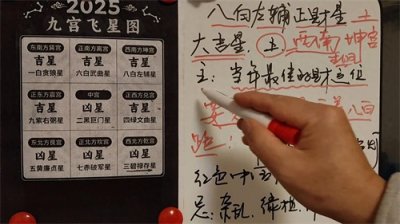 2025
九宫飞星图
东南方巽宫 正南方离宫 西南方坤宫
吉星 吉星 吉星
一白贪狼星 六白武曲星 八白左辅星
正东方震宫 中宫 正西方兑宫
吉星 凶星 吉星
九紫右弼星 二黑巨门星 四绿文曲星
东北方艮宫 正北方坎宫 西北方乾宫
凶星 凶星 凶星
五黄廉贞星 七赤破军星 三碧禄存星
八白左辅正财星 土
大吉星 土 西南 坤宫
主: 当年最佳的财位
八白
红色中
忌: 杂乱,